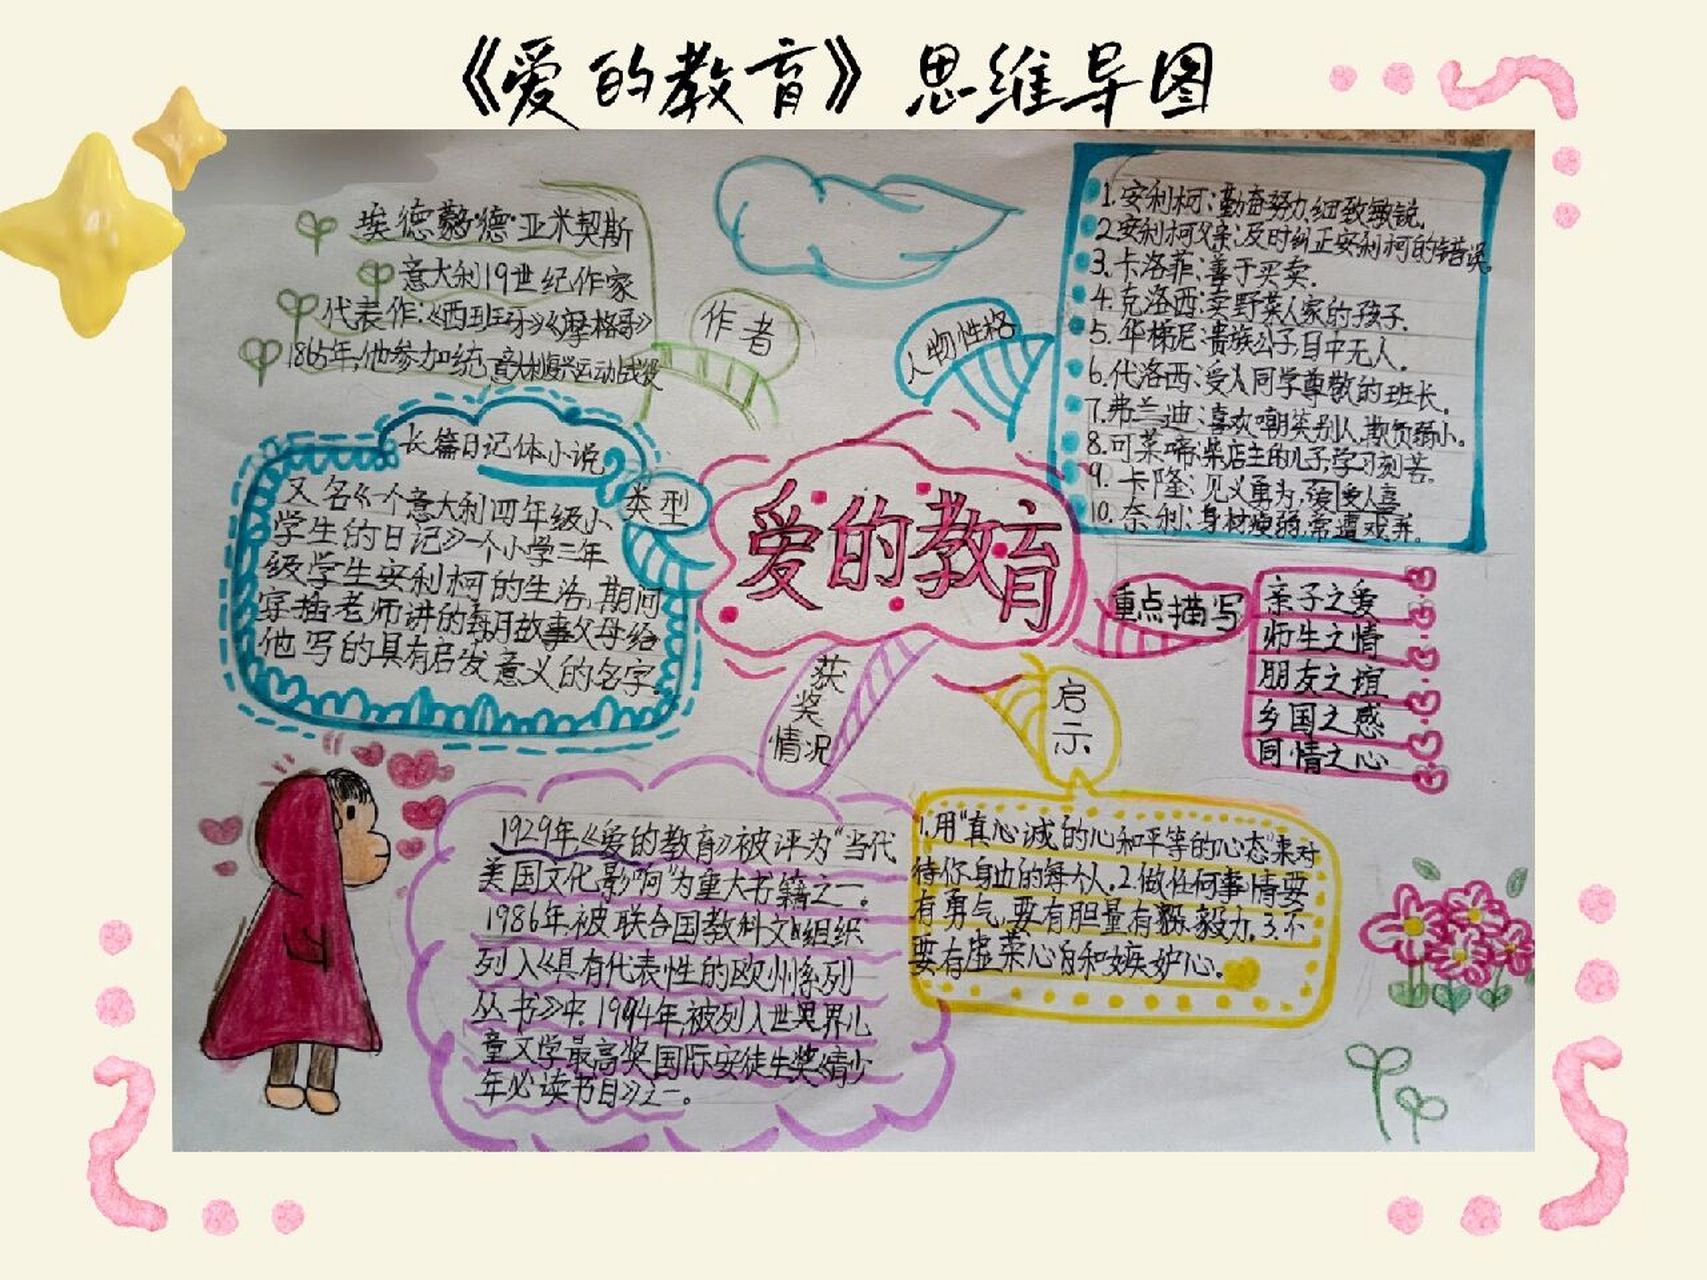 《爱的教育》思维导图
埃德蒙·德·亚米契斯
意大利19世纪作家
代表作:《西班牙》《摩格哥》
1865年,他参加统了意大利复兴运动战役
作者
人物性格
1.安利柯:勤奋努力,细致敏锐。
2.安利柯父亲:及时纠正安利柯的错误。
3.卡洛菲:善于买卖.
4.克洛西:卖野菜人家的孩子.
5.华梯尼:贵族公子,目中无人。
6.代洛西:受人同学尊敬的班长。
7.弗兰迪:喜欢嘲笑别人,欺负弱小。
8.可莱啼:柴店主的儿子,学习刻苦。
9.卡隆:见义勇为,受人喜
10.奈利:身材瘦弱,常遭戏弄。
长篇日记体小说
类型
又名《一个意大利四年级小
学生的日记》一个小学三年
级学生安利柯的生活,期间
穿插老师讲的每月故事父母给
他写的具有启发意义的名字。
爱的教育
重点描写
亲子之爱
师生之情
朋友之谊
乡国之感
同情之心
获奖情况
启示
1929年,《爱的教育》被评为“当代
美国文化影响”为重大书籍之一。
1986年被联合国教科文组织
列入《具有代表性的欧州系列
丛书》中.1994年,被列入世界儿
童文学最高奖国际安徒生奖《青少
年必读书目》之一。
1.用“真心诚的心和平等的心态”来对
待你身边的每个人。2.做任何事情要
有勇气,要有胆量有毅力。3.不
要有虚荣心和嫉妒心。